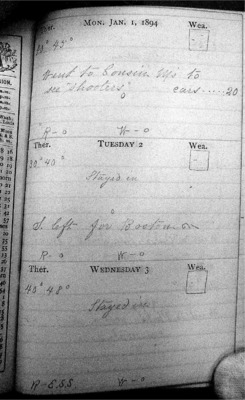 Mon. Jan. 1, 1894 Wea.
went to Cousin M's to
see "shooters" cars ..... 20
R-0 W-0
Ther. Tuesday 2 Wea.
Stayed in
S. left for Boston
R-0 W-0
Ther. Wednesday 3 Wea.
40° 48°
Stayed in
R-E.S.S W-0